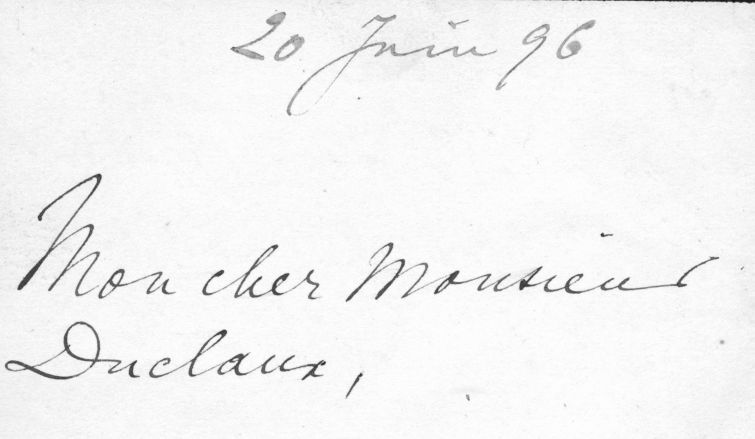 20 Juin 96
Mon cher Monsieur
Duclaux,